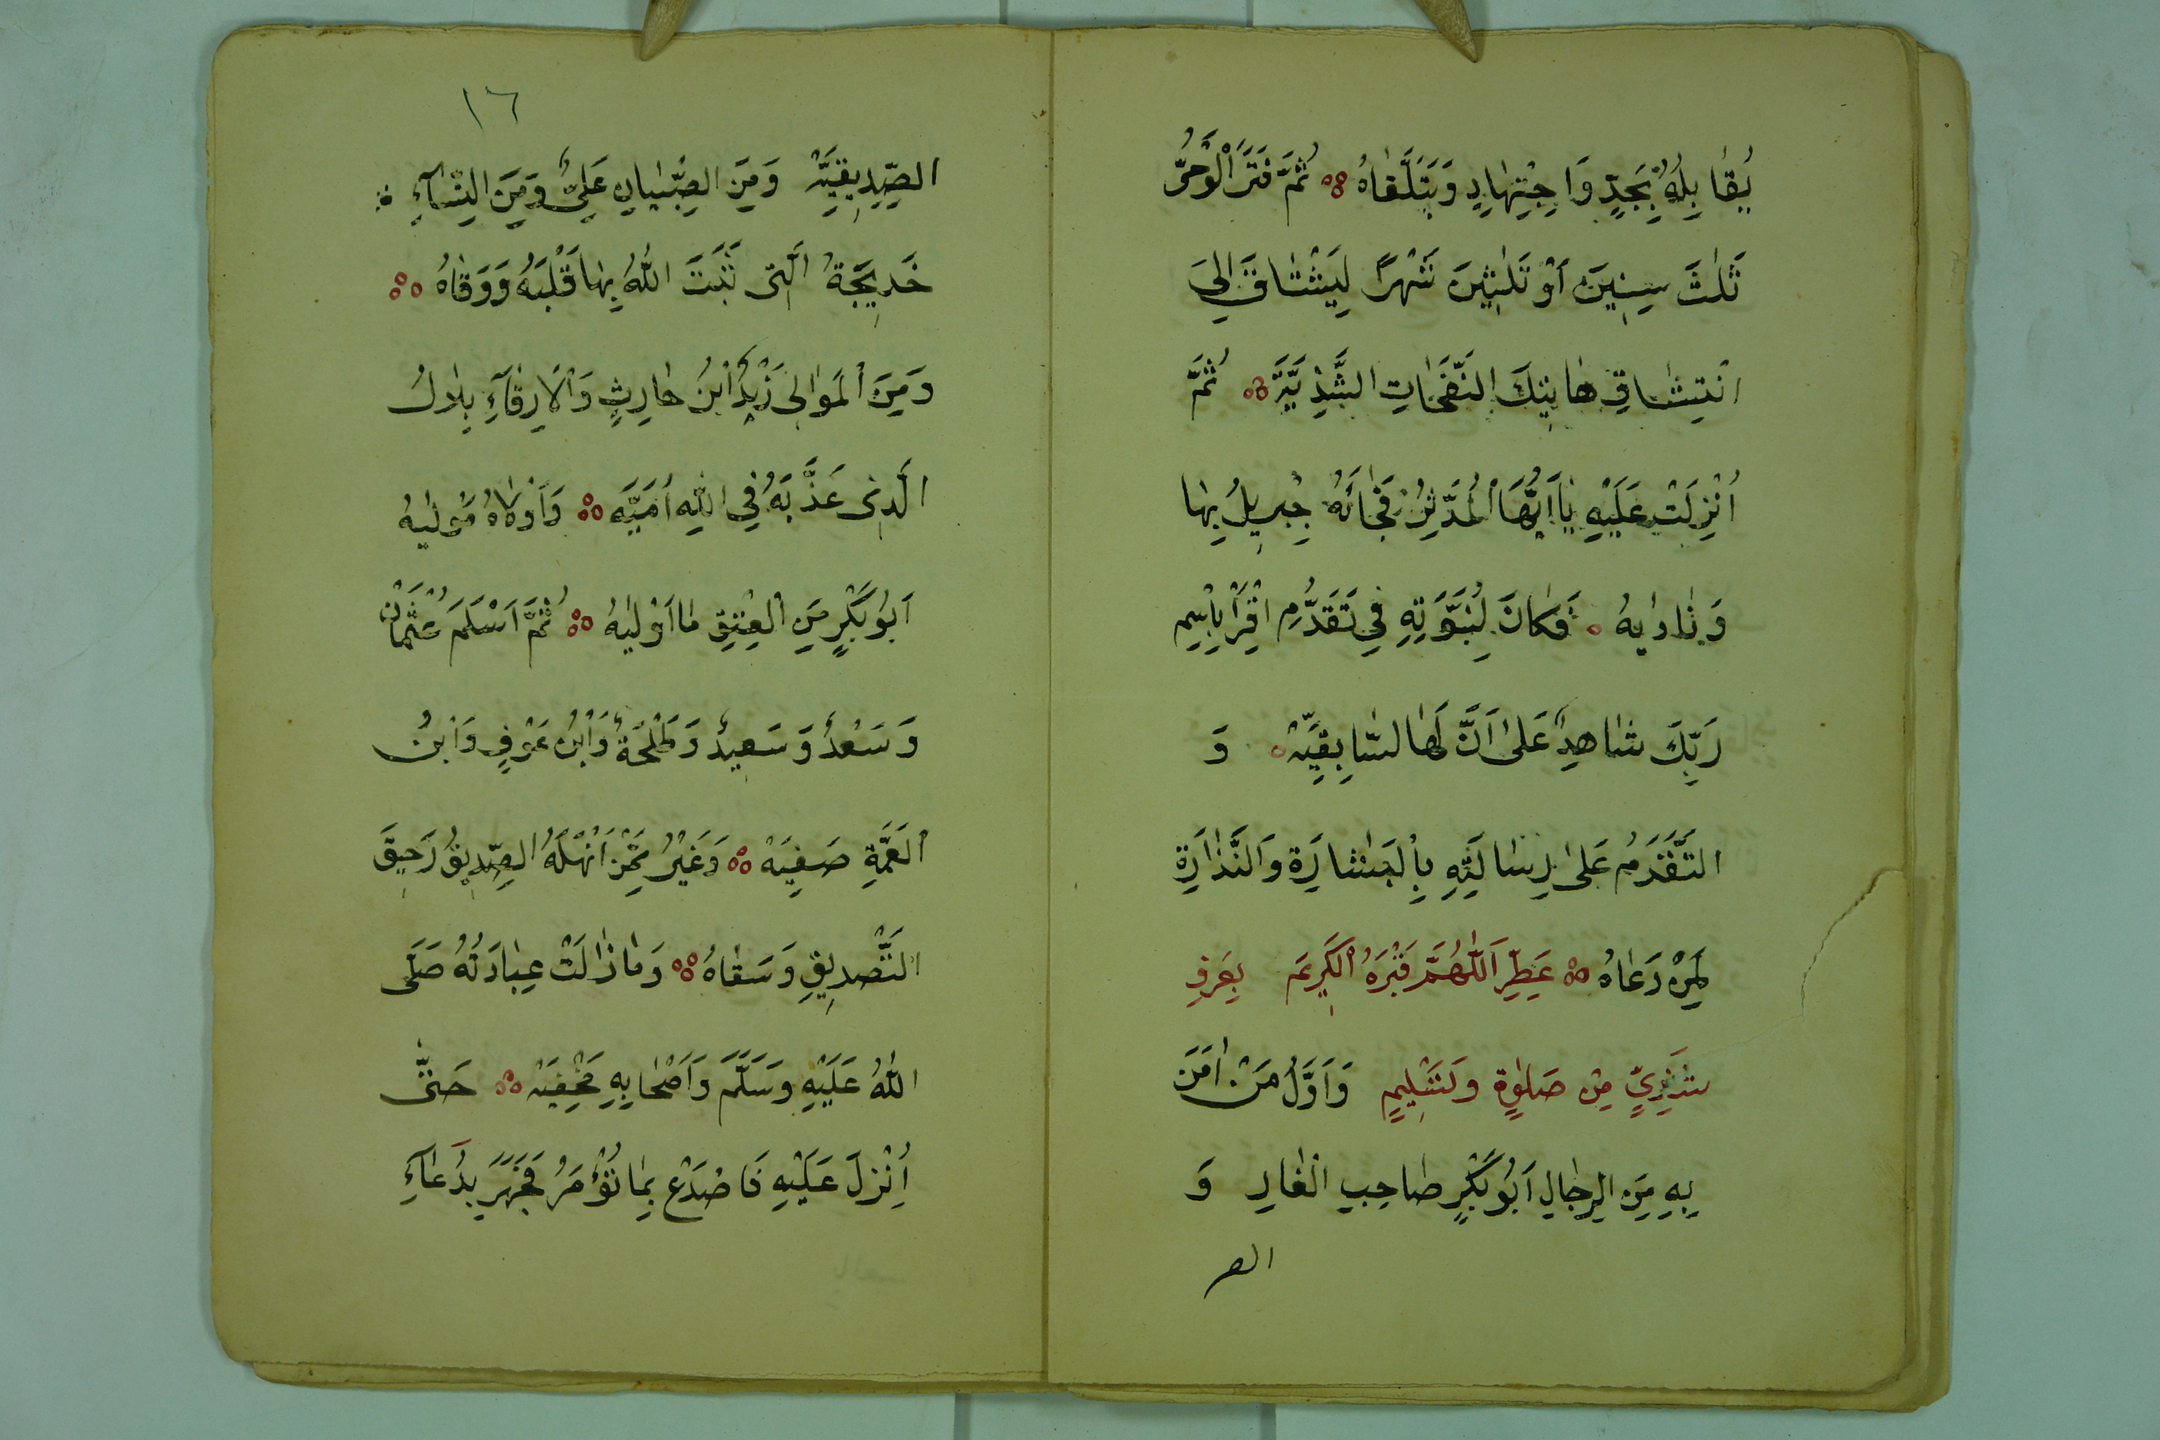 يُقَابِلُهُ بِجَدٍّ وَاجْتِهَادٍ وَيَتَلَقَّاهُ ۞ ثُمَّ فَتَرَ الْوَحْىُ
ثَلٰثَ سِنِينَ اَوْ ثَلٰثِينَ شَهْرًا لِيَشْتَاقَ اِلىَ
انْتِشَاقِ هَاتِيكَ النَّفَحَاتِ الشَّذِيَّةِ ۞ ثُمَّ
اُنْزِلَتْ عَلَيْهِ يَا اَيُّهَا الْمُدَّثِّرُ فَجَائَهُ جِبْرِيلُ بِهَا
وَنَادٰيهُ ۞ فَكَانَ لِنُبُوَّتِهِ فِى تَقَدُّمِ اقْرَأْ بِاسْمِ
رَبِّكَ شَاهِدٌ عَلىٰ اَنَّ لَهَا السَّابِقِيَّةْ ۞ وَ
التَّقَدُّمُ عَلىٰ رِسَالَتِهِ بِالْبَشَارَةِ وَالنَّذَارَةِ
لِمَنْ دَعَاهُ ۞ عَطِّرِ اَللّٰهُمَّ قَبْرَهُ الْكَرِيمَ بِعَرْفٍ
شَذِىٍّ مِنْ صَلٰوةٍ وَتَسْلِيمٍ وَاَوَّلُ مَنْ اٰمَنَ
بِهِ مِنَ الرِّجَالِ اَبُو بَكْرٍ صَاحِبِ الْغَارِ وَ
الص
١٦
الصِّدِّيقِيَّةْ وَمِنَ الصِّبْيَانِ عَلِىٌّ وَمِنَ النِّسَآءِ
خَدِيجَةُ الَّتِى ثَبَّتَ اللّٰهُ بِهَا قَلْبَهُ وَوَقَاهُ ۞
وَمِنَ الْمَوَالِى زَيْدُ ابْنُ حَارِثٍ وَالْاَرِقَّآءِ بِلَالُ
الَّذِى عَذَّبَهُ فِى اللّٰهِ اُمَيَّه ۞ وَاَوْلَاهُ مَوْلٰيهُ
اَبُو بَكْرٍ مِنَ الْعِتْقِ مَا اَوْلٰيهُ ۞ ثُمَّ اَسْلَمَ عُثْمَانُ
وَسَعْدٌ وَسَعِيدٌ وَطَلْحَةُ وَابْنُ عَوْفٍ وَابْنُ
الْعَمَّةِ صَفِيَه ۞ وَغَيْرُ مِمَّنْ اَنْهَلَهُ الصِّدِّيقُ رَحِيقَ
التَّصْدِيقِ وَسَقَاهُ ۞ وَمَا زَالَتْ عِبَادَتُهُ صَلَّى
اللّٰهُ عَلَيْهِ وَسَلَّمَ وَاَصْحَابِهِ مَخْفِيَه ۞ حَتّٰى
اُنْزِلَ عَلَيْهِ فَاصْدَعْ بِمَا تُؤْمَرُ فَجَهَرَ بِدُعَآءِ